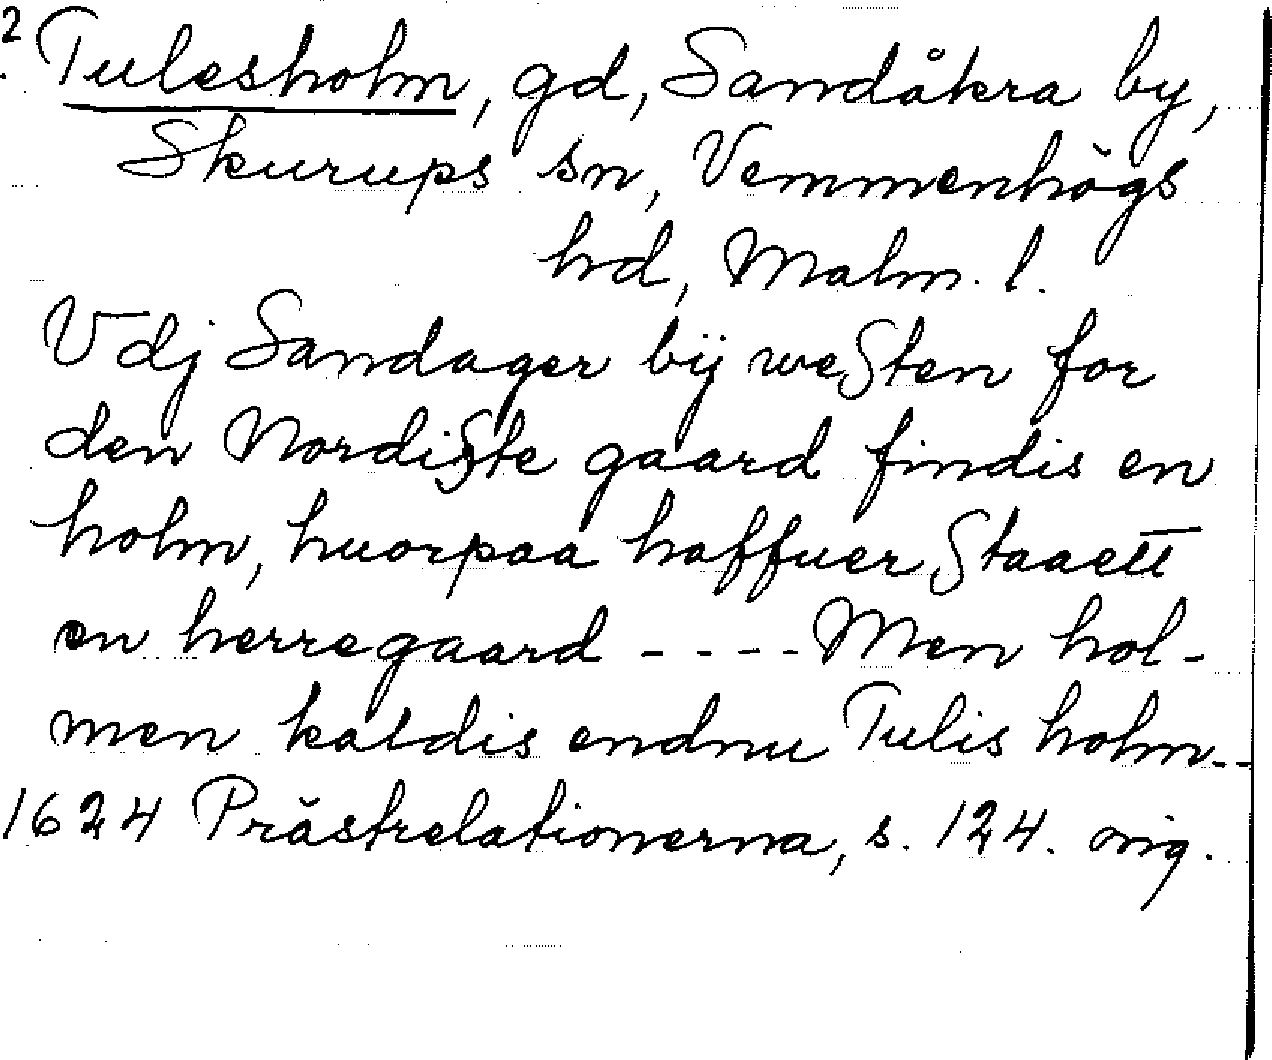 2
Tulesholm, gd, Sandåkra by,
Skurups sn, Vemmenhögs
hd, Malm. l.
Vdj Sandager bÿ westen for
den Nordiste gaard findis en
holm, huorpaa haffuer staaett
en herregaard ---- Men hol-
men kaldis endnu Tulis holm--
1624 Prästrelationerna, s. 124. orig.